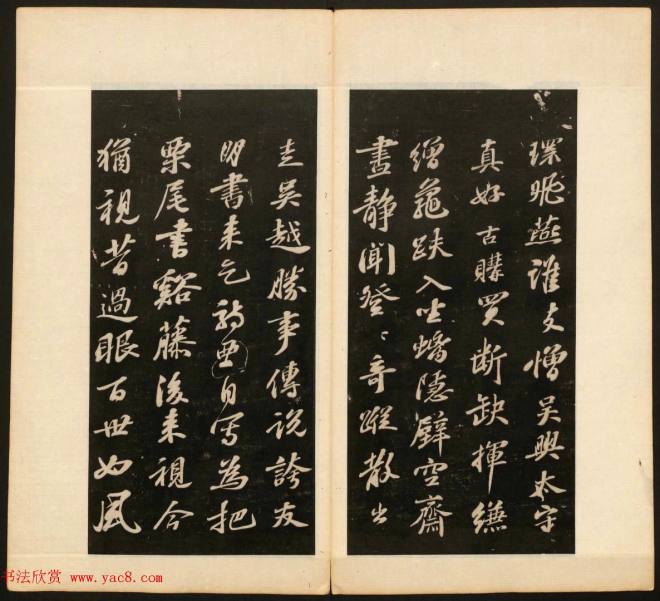 環飛燕誰敢憎吳興太守
真好古購買斷缺揮縑
繒龜趺入坐螭隱壁空齋
晝靜聞登〻奇蹤散出
走吳越勝事傳說誇友
朋書来乞詩要自寫為把
栗尾書谿藤後来視今
猶視昔過眼百世如風
书法欣赏 www.yac8.com